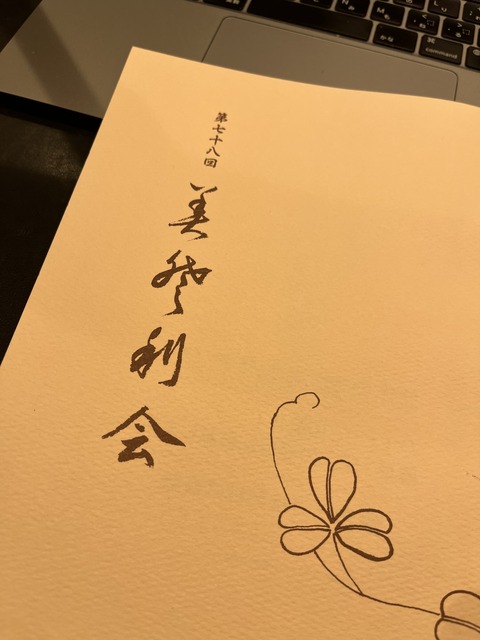 第七十八回
美登利会
command